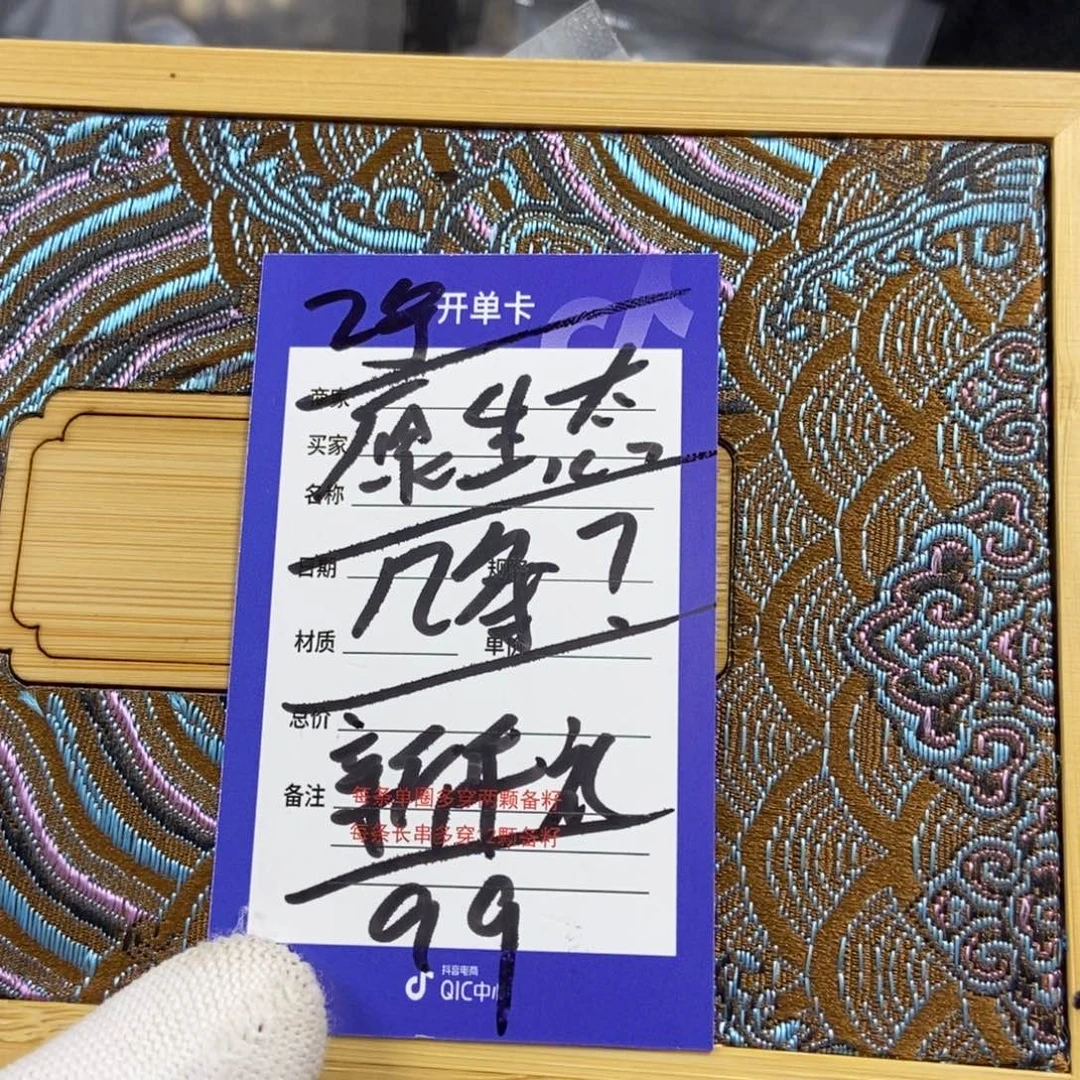 开单卡
2年
商家
原生态
买家
名称
日期 规格
几条?
材质 单价
总价
备注 每条单圈多穿两颗备籽
每条长串多穿12颗备籽
99
抖音电商
QIC中心